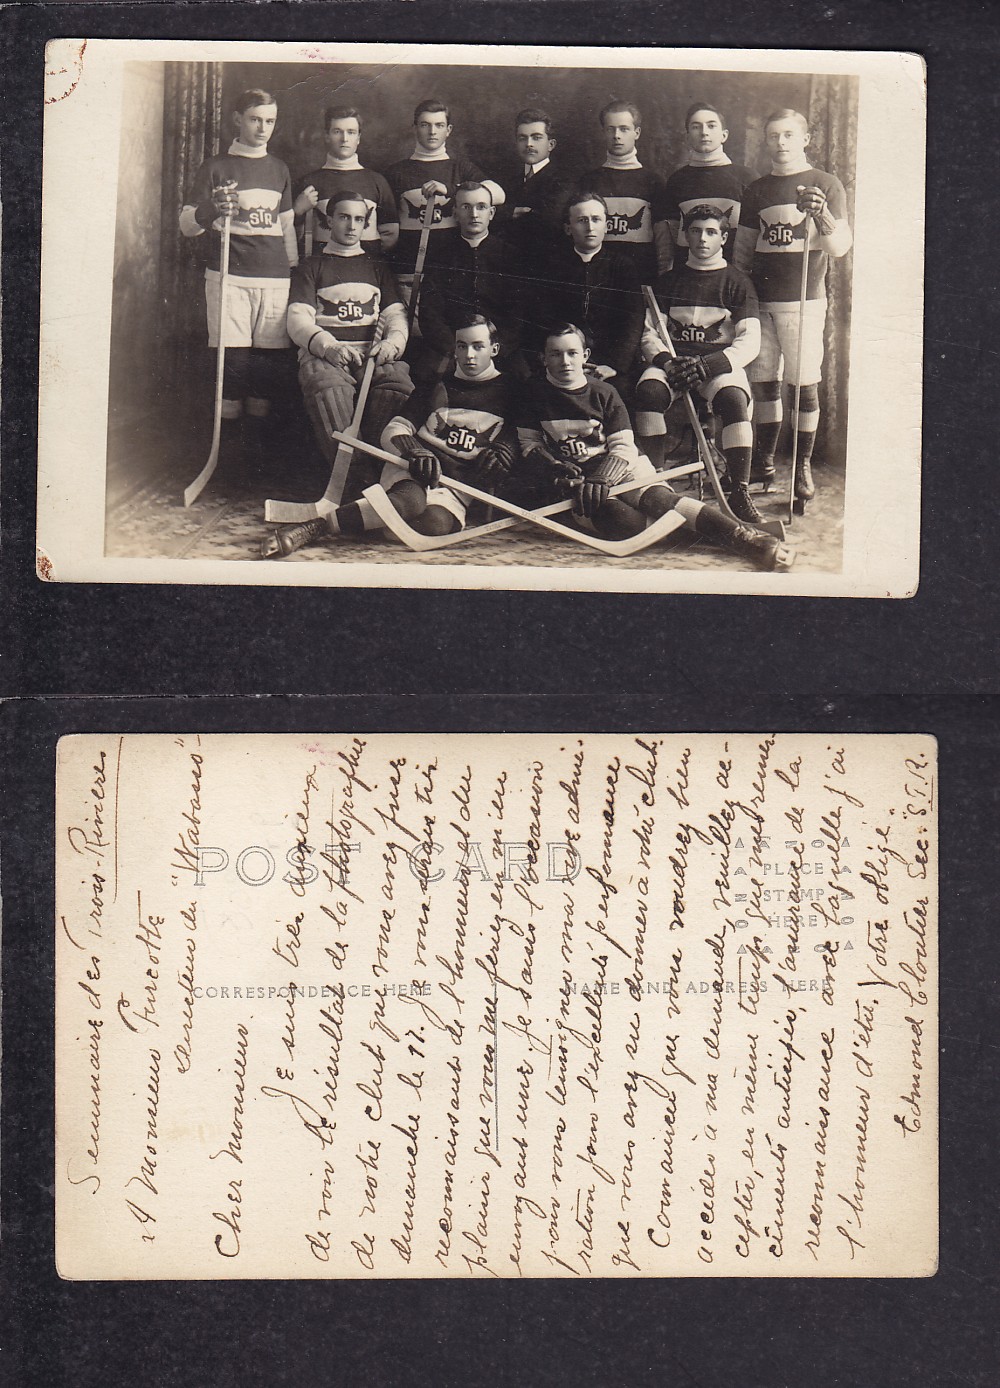 STR
STR
STR
STR
STR
STR
STR
STR
POST CARD
CORRESPONDENCE HERE
NAME AND ADDRESS HERE
PLACE
STAMP
HERE
Séminaire des Trois-Rivières
A Monsieur Turcotte
directeur du "Wabasso"
Cher Monsieur.
Je suis très désireux
de voir le résultat de la photographie
de notre club que vous avez prise
dimanche le 17. Je vous serais très
reconnaissant de l'honneur et du
plaisir que vous me feriez en m'en
envoyant une. Je saisis l'occasion
pour vous témoigner ma vive admi-
ration pour l'excellente performance
que vous avez su donner à votre club.
Convaincu que vous voudrez bien
accéder à ma demande, veuillez ac-
cepter, en même temps que mes remer-
ciments anticipés, l'assurance de la
reconnaissance avec laquelle j'ai
l'honneur d'être, Votre obligé
Edmond Cloutier Sec. "S.T.R."